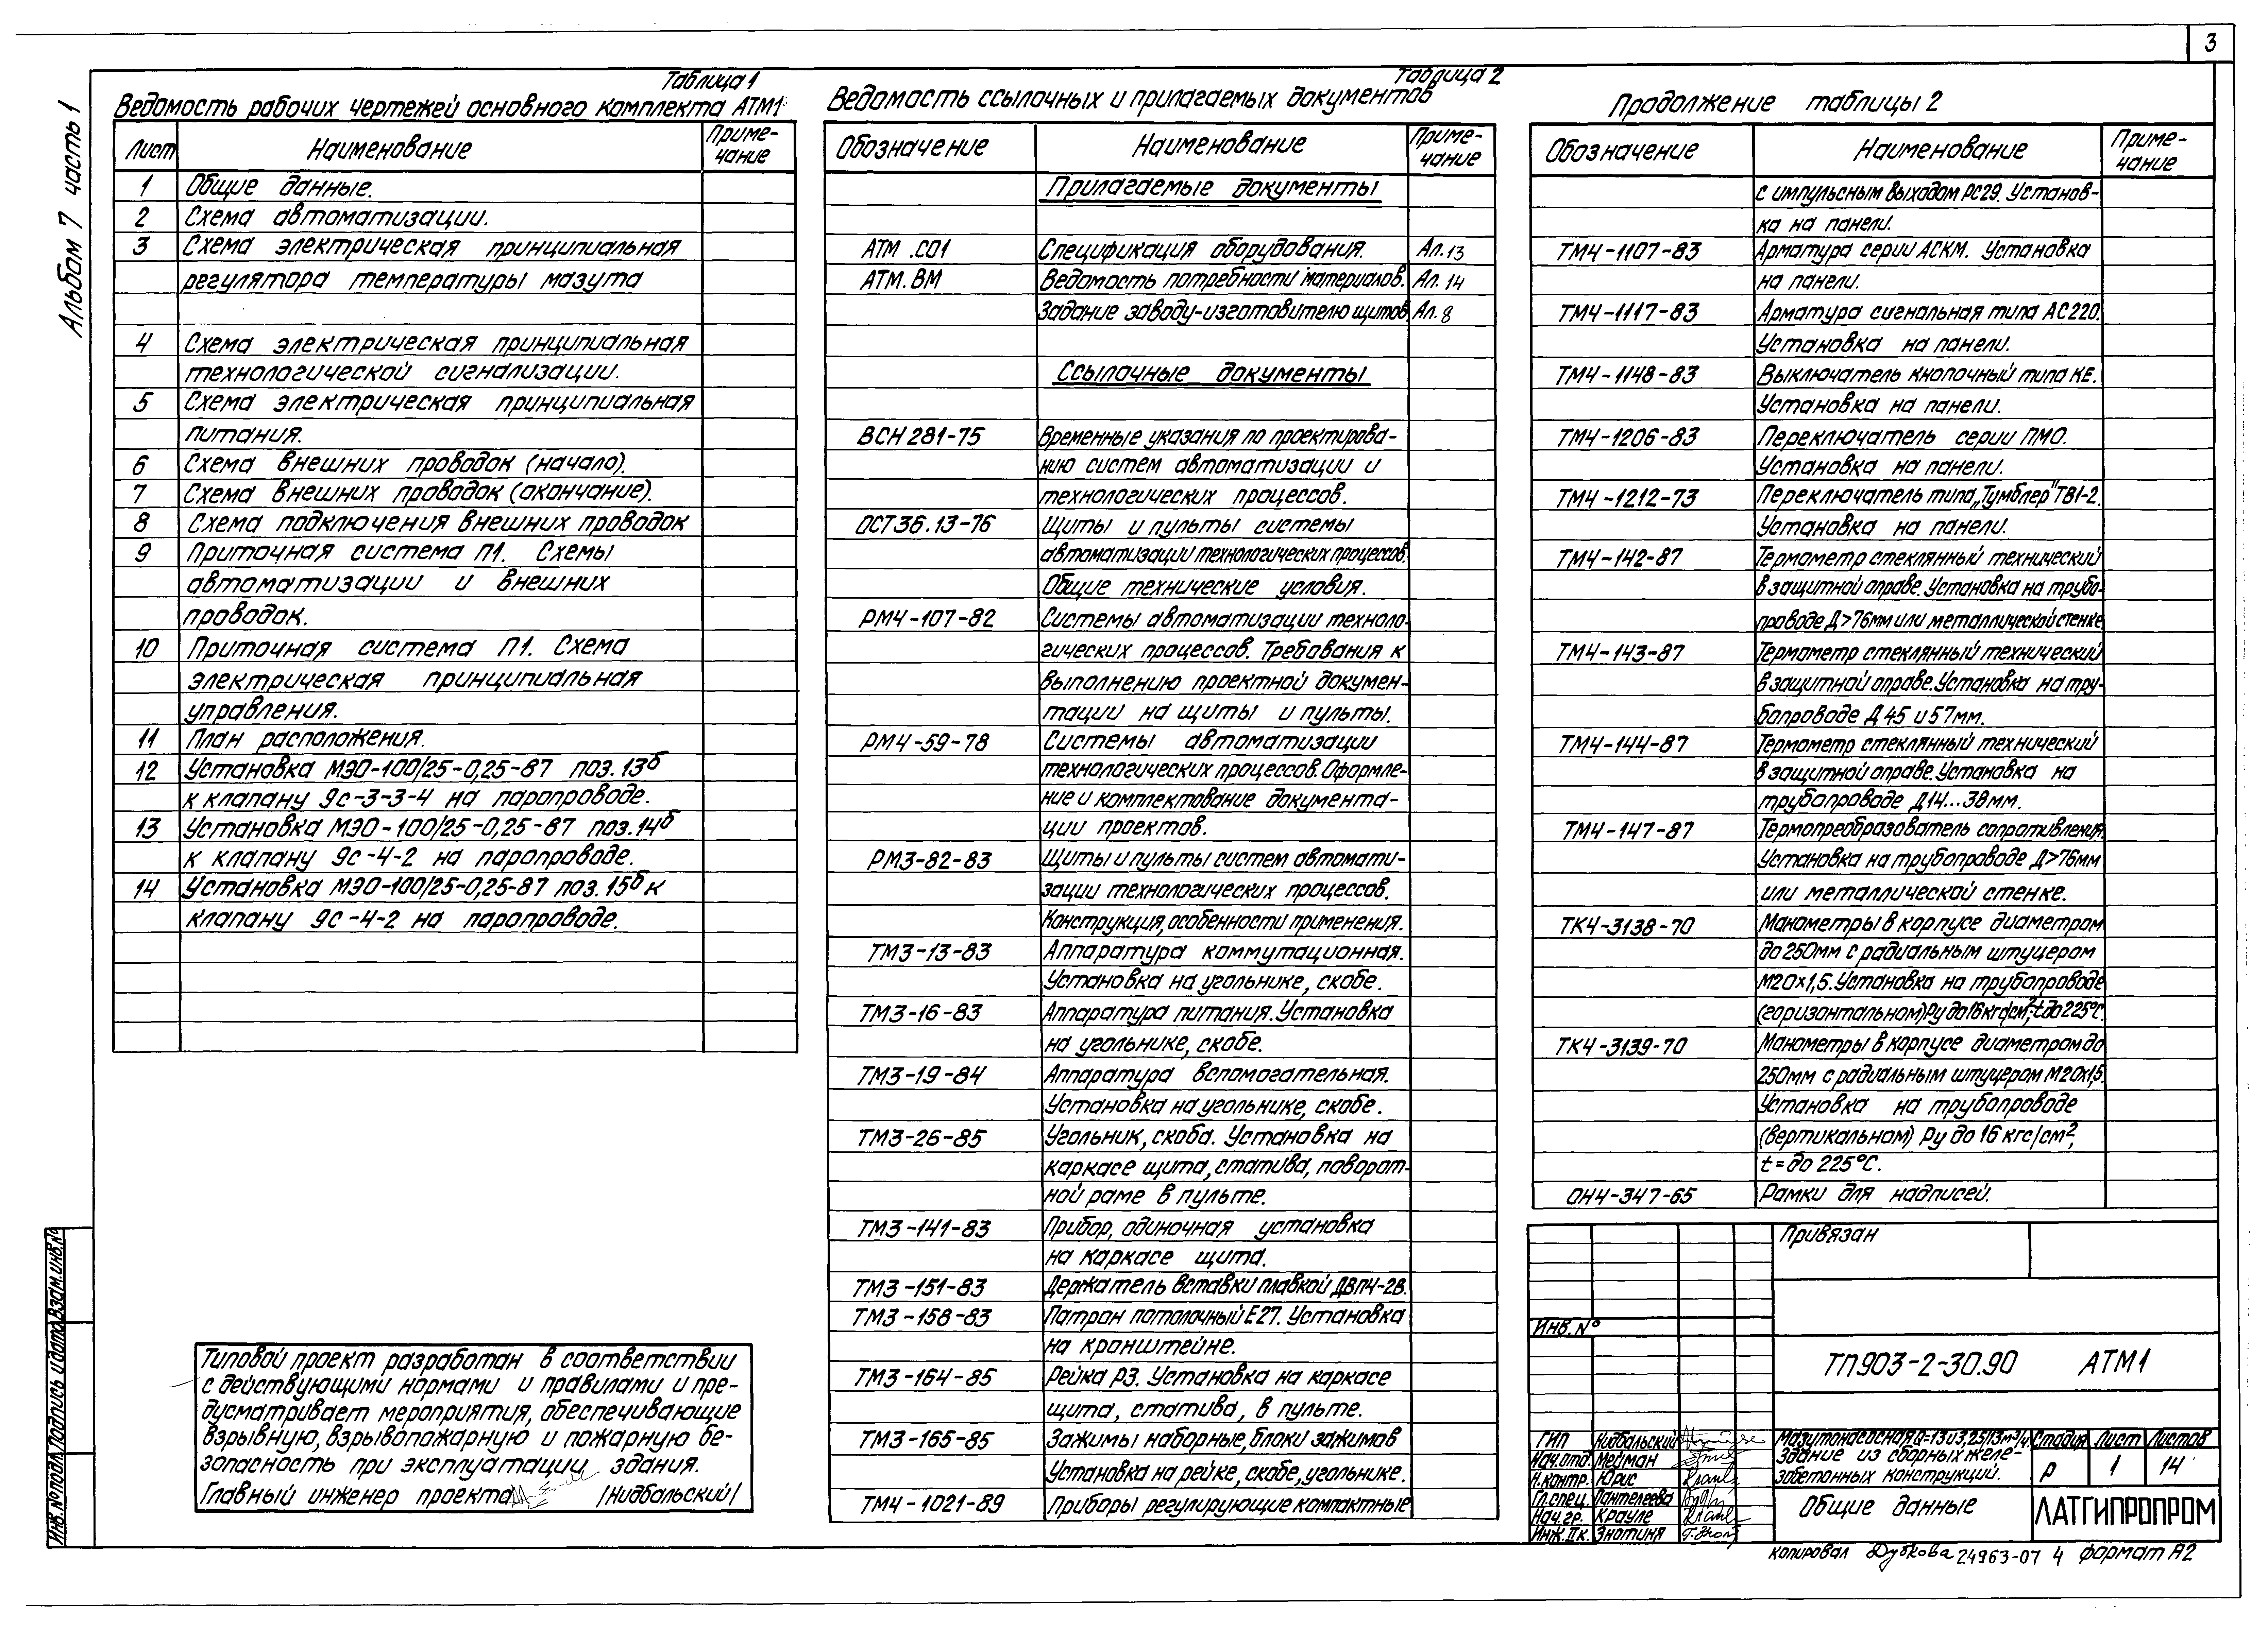 3
Альбом 7 часть 1
Таблица 1
Ведомость рабочих чертежей основного комплекта АТМ1
Лист Наименование Приме-
чание
1 Общие данные.
2 Схема автоматизации.
3 Схема электрическая принципиальная
регулятора температуры мазута
4 Схема электрическая принципиальная
технологической сигнализации.
5 Схема электрическая принципиальная
питания.
6 Схема внешних проводок (начало).
7 Схема внешних проводок (окончание).
8 Схема подключения внешних проводок
9 Приточная система П1. Схемы
автоматизации и внешних
проводок.
10 Приточная система П1. Схема
электрическая принципиальная
управления.
11 План расположения.
12 Установка МЭО-100/25-0,25-87 поз. 13б
к клапану 9с-3-3-4 на паропроводе.
13 Установка МЭО-100/25-0,25-87 поз. 14б
к клапану 9с-4-2 на паропроводе.
14 Установка МЭО-100/25-0,25-87 поз. 15б к
клапану 9с-4-2 на паропроводе.
Типовой проект разработан в соответствии
с действующими нормами и правилами и пре-
дусматривает мероприятия, обеспечивающие
взрывную, взрывопожарную и пожарную бе-
зопасность при эксплуатации здания.
Главный инженер проекта /Нидбальский/
Таблица 2
Ведомость ссылочных и прилагаемых документов
Обозначение Наименование Приме-
чание
Прилагаемые документы
АТМ .СО1 Спецификация оборудования. Ал.13
АТМ. ВМ Ведомость потребности материалов. Ал. 14
Задание заводу-изготовителю щитов Ал. 8
Ссылочные документы
ВСН 281-75 Временные указания по проектирова-
нию систем автоматизации и
технологических процессов.
ОСТ 36.13-76 Щиты и пульты системы
автоматизации технологических процессов.
Общие технические условия.
РМ4-107-82 Системы автоматизации техноло-
гических процессов. Требования к
выполнению проектной докумен-
тации на щиты и пульты.
РМ4-59-78 Системы автоматизации
технологических процессов. Оформле-
ние и комплектование документа-
ции проектов.
РМ3-82-83 Щиты и пульты систем автомати-
зации технологических процессов.
Конструкция, особенности применения.
ТМ3-13-83 Аппаратура коммутационная.
Установка на угольнике, скобе.
ТМ3-16-83 Аппаратура питания. Установка
на угольнике, скобе.
ТМ3-19-84 Аппаратура вспомогательная.
Установка на угольнике, скобе.
ТМ3-26-85 Угольник, скоба. Установка на
каркасе щита, статива, поворот-
ной раме в пульте.
ТМ3-141-83 Прибор, одиночная установка
на каркасе щита.
ТМ3-151-83 Держатель вставки плавкой ДВП4-2В.
ТМ3-158-83 Патрон потолочный Е27. Установка
на кронштейне.
ТМ3-164-85 Рейка Р3. Установка на каркасе
щита, статива, в пульте.
ТМ3-165-85 Зажимы наборные, блоки зажимов
Установка на рейке, скобе, угольнике.
ТМ4-1021-89 Приборы регулирующие компактные
Продолжение таблицы 2
Обозначение Наименование Приме-
чание
с импульсным выходом РС29. Установ-
ка на панели.
ТМ4-1107-83 Арматура серии АСКМ. Установка
на панели.
ТМ4-1117-83 Арматура сигнальная типа АС220.
Установка на панели.
ТМ4-1148-83 Выключатель кнопочный типа КЕ.
Установка на панели.
ТМ4-1206-83 Переключатель серии ПМО.
Установка на панели.
ТМ4-1212-73 Переключатель типа „Тумблер" ТВ1-2.
Установка на панели.
ТМ4-142-87 Термометр стеклянный технический
в защитной оправе. Установка на трубо-
проводе Д>76мм или металлической стенке
ТМ4-143-87 Термометр стеклянный технический
в защитной оправе. Установка на тру-
бопроводе Д 45 и 57мм.
ТМ4-144-87 Термометр стеклянный технический
в защитной оправе. Установка на
трубопроводе Д14...38мм.
ТМ4-147-87 Термопреобразователь сопротивления.
Установка на трубопроводе Д>76мм
или металлической стенке.
ТК4-3138-70 Манометры в корпусе диаметром
до 250мм с радиальным штуцером
М20×1,5. Установка на трубопроводе
(горизонтальном) Ру до 16 кгс/см², t до 225°С.
ТК4-3139-70 Манометры в корпусе диаметром до
250мм с радиальным штуцером М20х1,5.
Установка на трубопроводе
(вертикальном) Ру до 16 кгс/см²,
t = до 225°С.
ОН4-347-65 Рамки для надписей.
Привязан
Инв. №
ТП903-2-30.90 АТМ1
ГИП Нидбальский
Нач.отд Мейман
Н.контр. Юрис
Гл.спец. Пантелеева
Нач.гр. Крауле
Инж. II к. Знотиня
Мазутонасосная Q=13 и 3,25/13м³/ч.
Здание из сборных желе-
зобетонных конструкций.
Стадия Лист Листов
Р 1 14
Общие данные
ЛАТГИПРОПРОМ
Копировал Дубкова 24963-07 4 формат А2
Инв. № подл. Подпись и дата Взам.инв.№